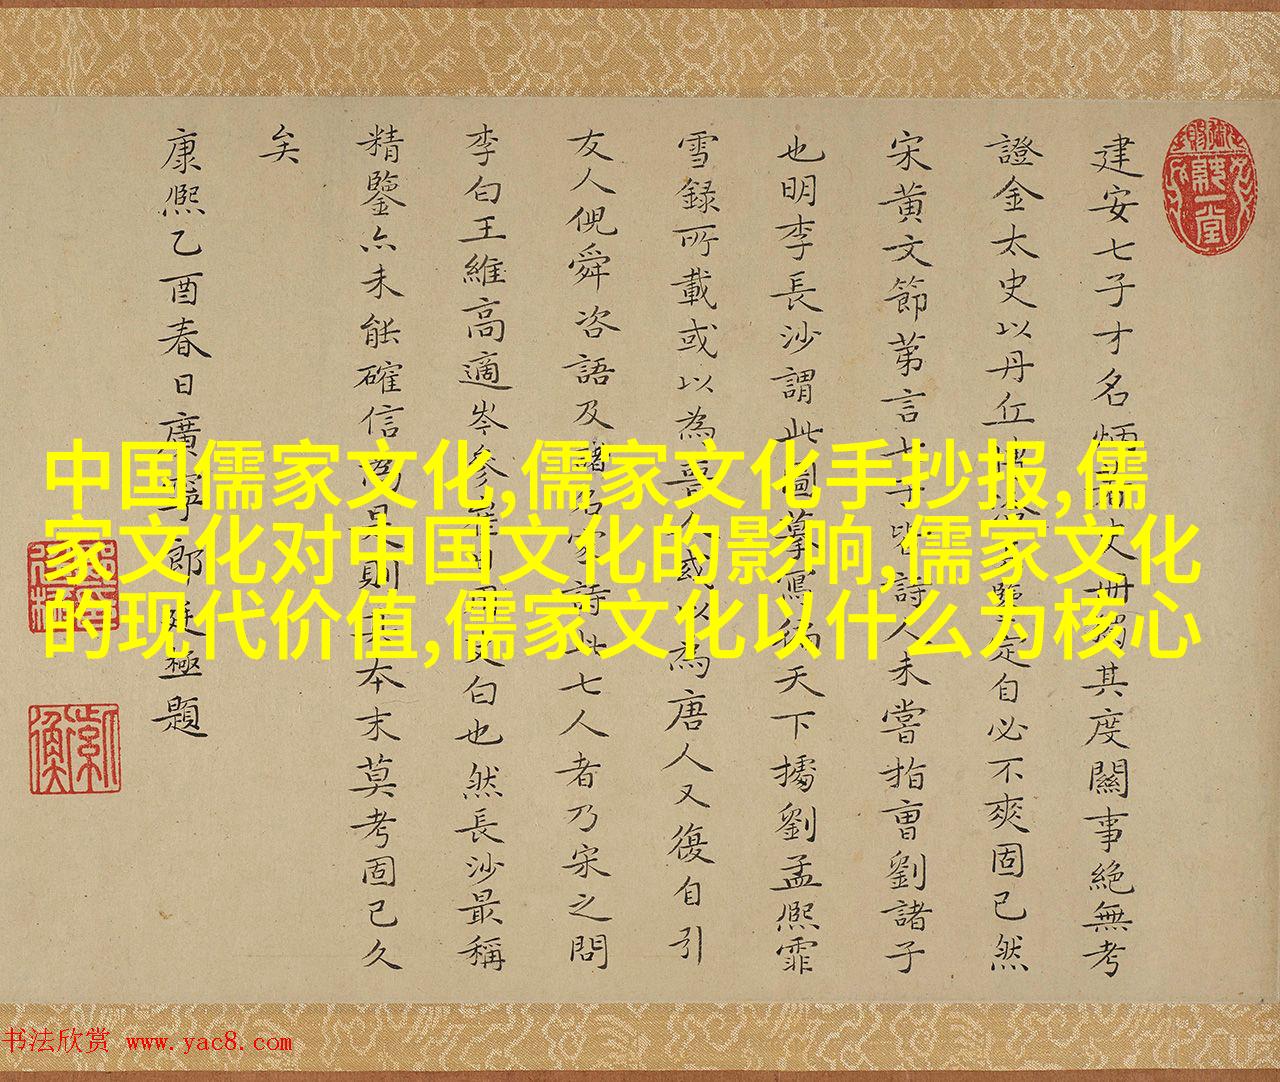 建安七子才名炳其度關事絕無考
證金太史以丹丘定自必不爽固已然
宋黃文節第言七子皆詩人未嘗指曹劉諸子
也明李長沙謂此圖摹寫徧天下據劉孟熙霏
雪録所載或以為晉人或以為唐人又復自引
友人倪舜咨語及諸名家詩此七人者乃宋之問
李白王維高適岑參崔白也然長沙最稱
精鑒亦未能確信為是則其本末莫考固已久
矣
康熙乙酉春日廣寧郎廷極題
中国儒家文化,儒家文化手抄报,儒
家文化对中国文化的影响,儒家文化
的现代价值,儒家文化以什么为核心
书法欣赏 www.yac8.com